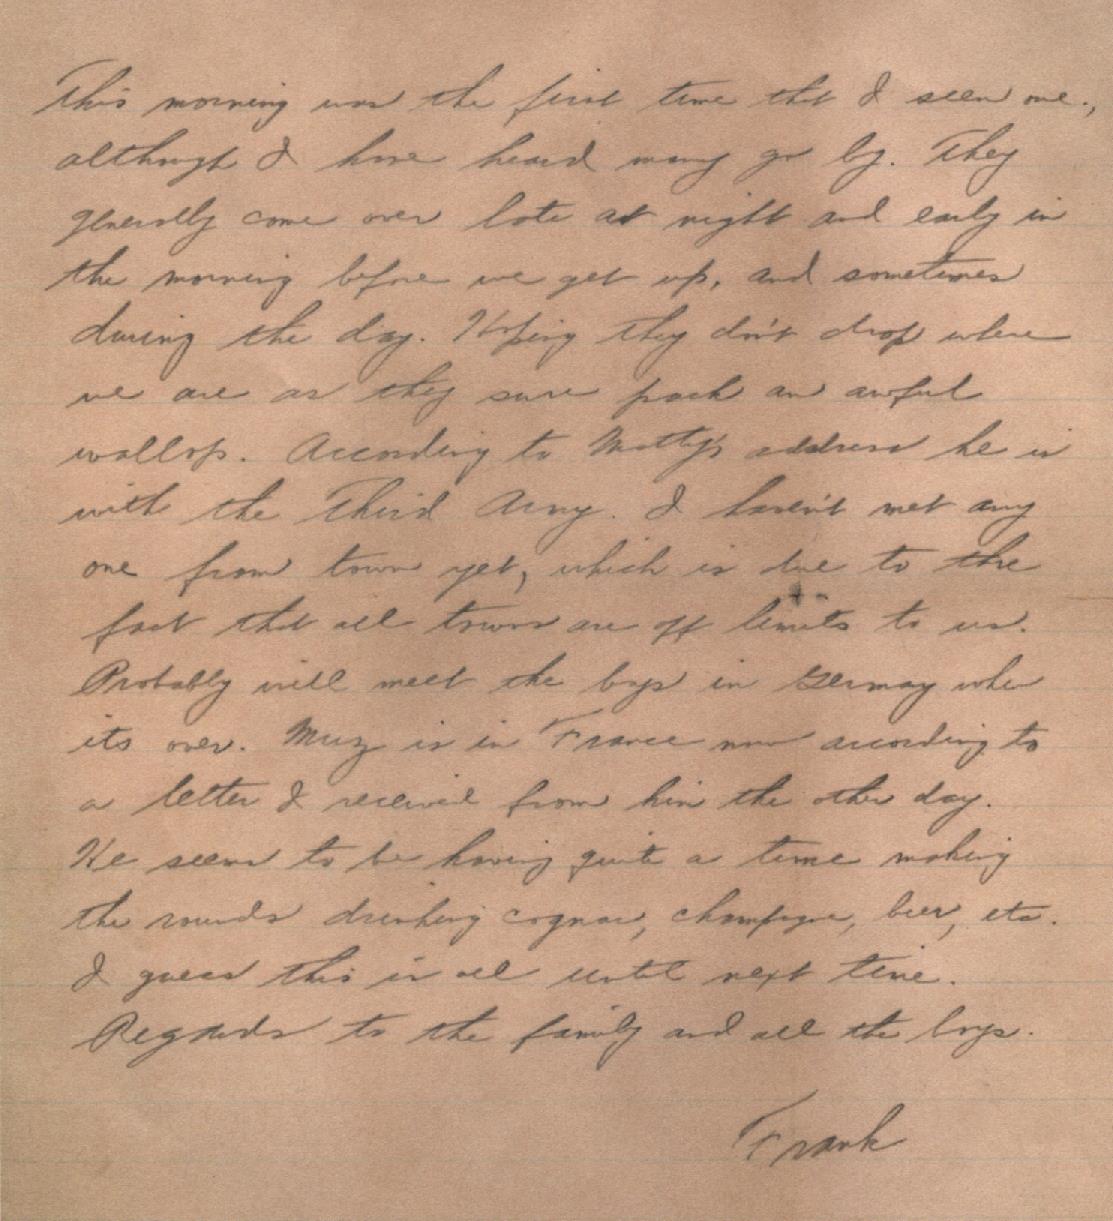 This morning was the first time that I seen one.,
although I have heard many go by. They
generally come over late at night and early in
the morning before we get up, and sometimes
during the day. Hoping they don't drop where
we are as they sure pack an awful
wallop. According to Matty's address he is
with the Third Army. I haven't met any
one from town yet, which is due to the
fact that all towns are off limits to us.
Probably will meet the boys in Germay when
its over. Muz is in France now according to
a letter I received from him the other day.
He seems to be having quite a time making
the rounds drinking cognac, champagne, beer, etc.
I guess this is all until next time.
Regards to the family and all the boys.
Frank